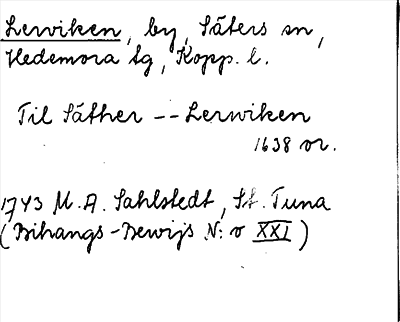 Lerviken, by, Säters sn,
Hedemora tg, Kopp. l.
Til Säther -- Lerwiken
1638 or.
1743 M. A. Sahlstedt, St. Tuna
(Bihangs-Bewijs N:o XXI)